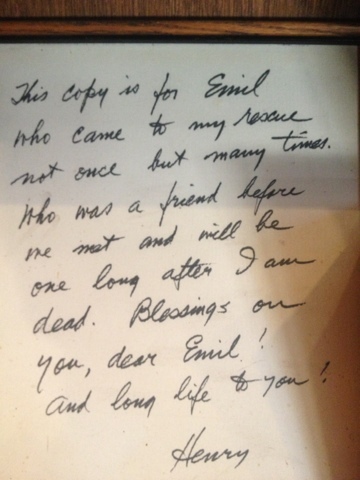 This copy is for Emil
who came to my rescue
not once but many times.
Who was a friend before
we met and will be
one long after I am
dead. Blessings on
you, dear Emil!
And long life to you!
Henry